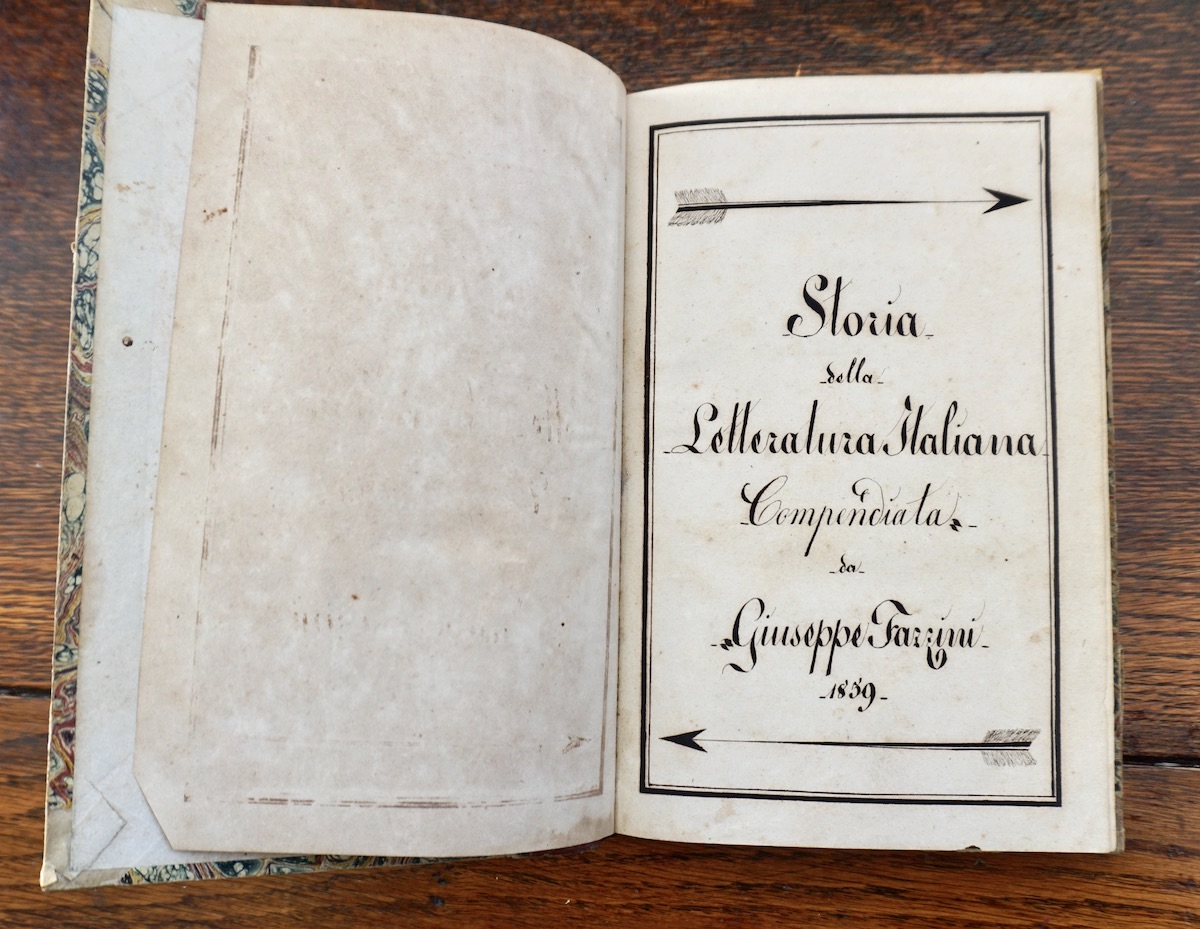 Storia
della
Letteratura Italiana
Compendiata
da
Giuseppe Fazzini
1859